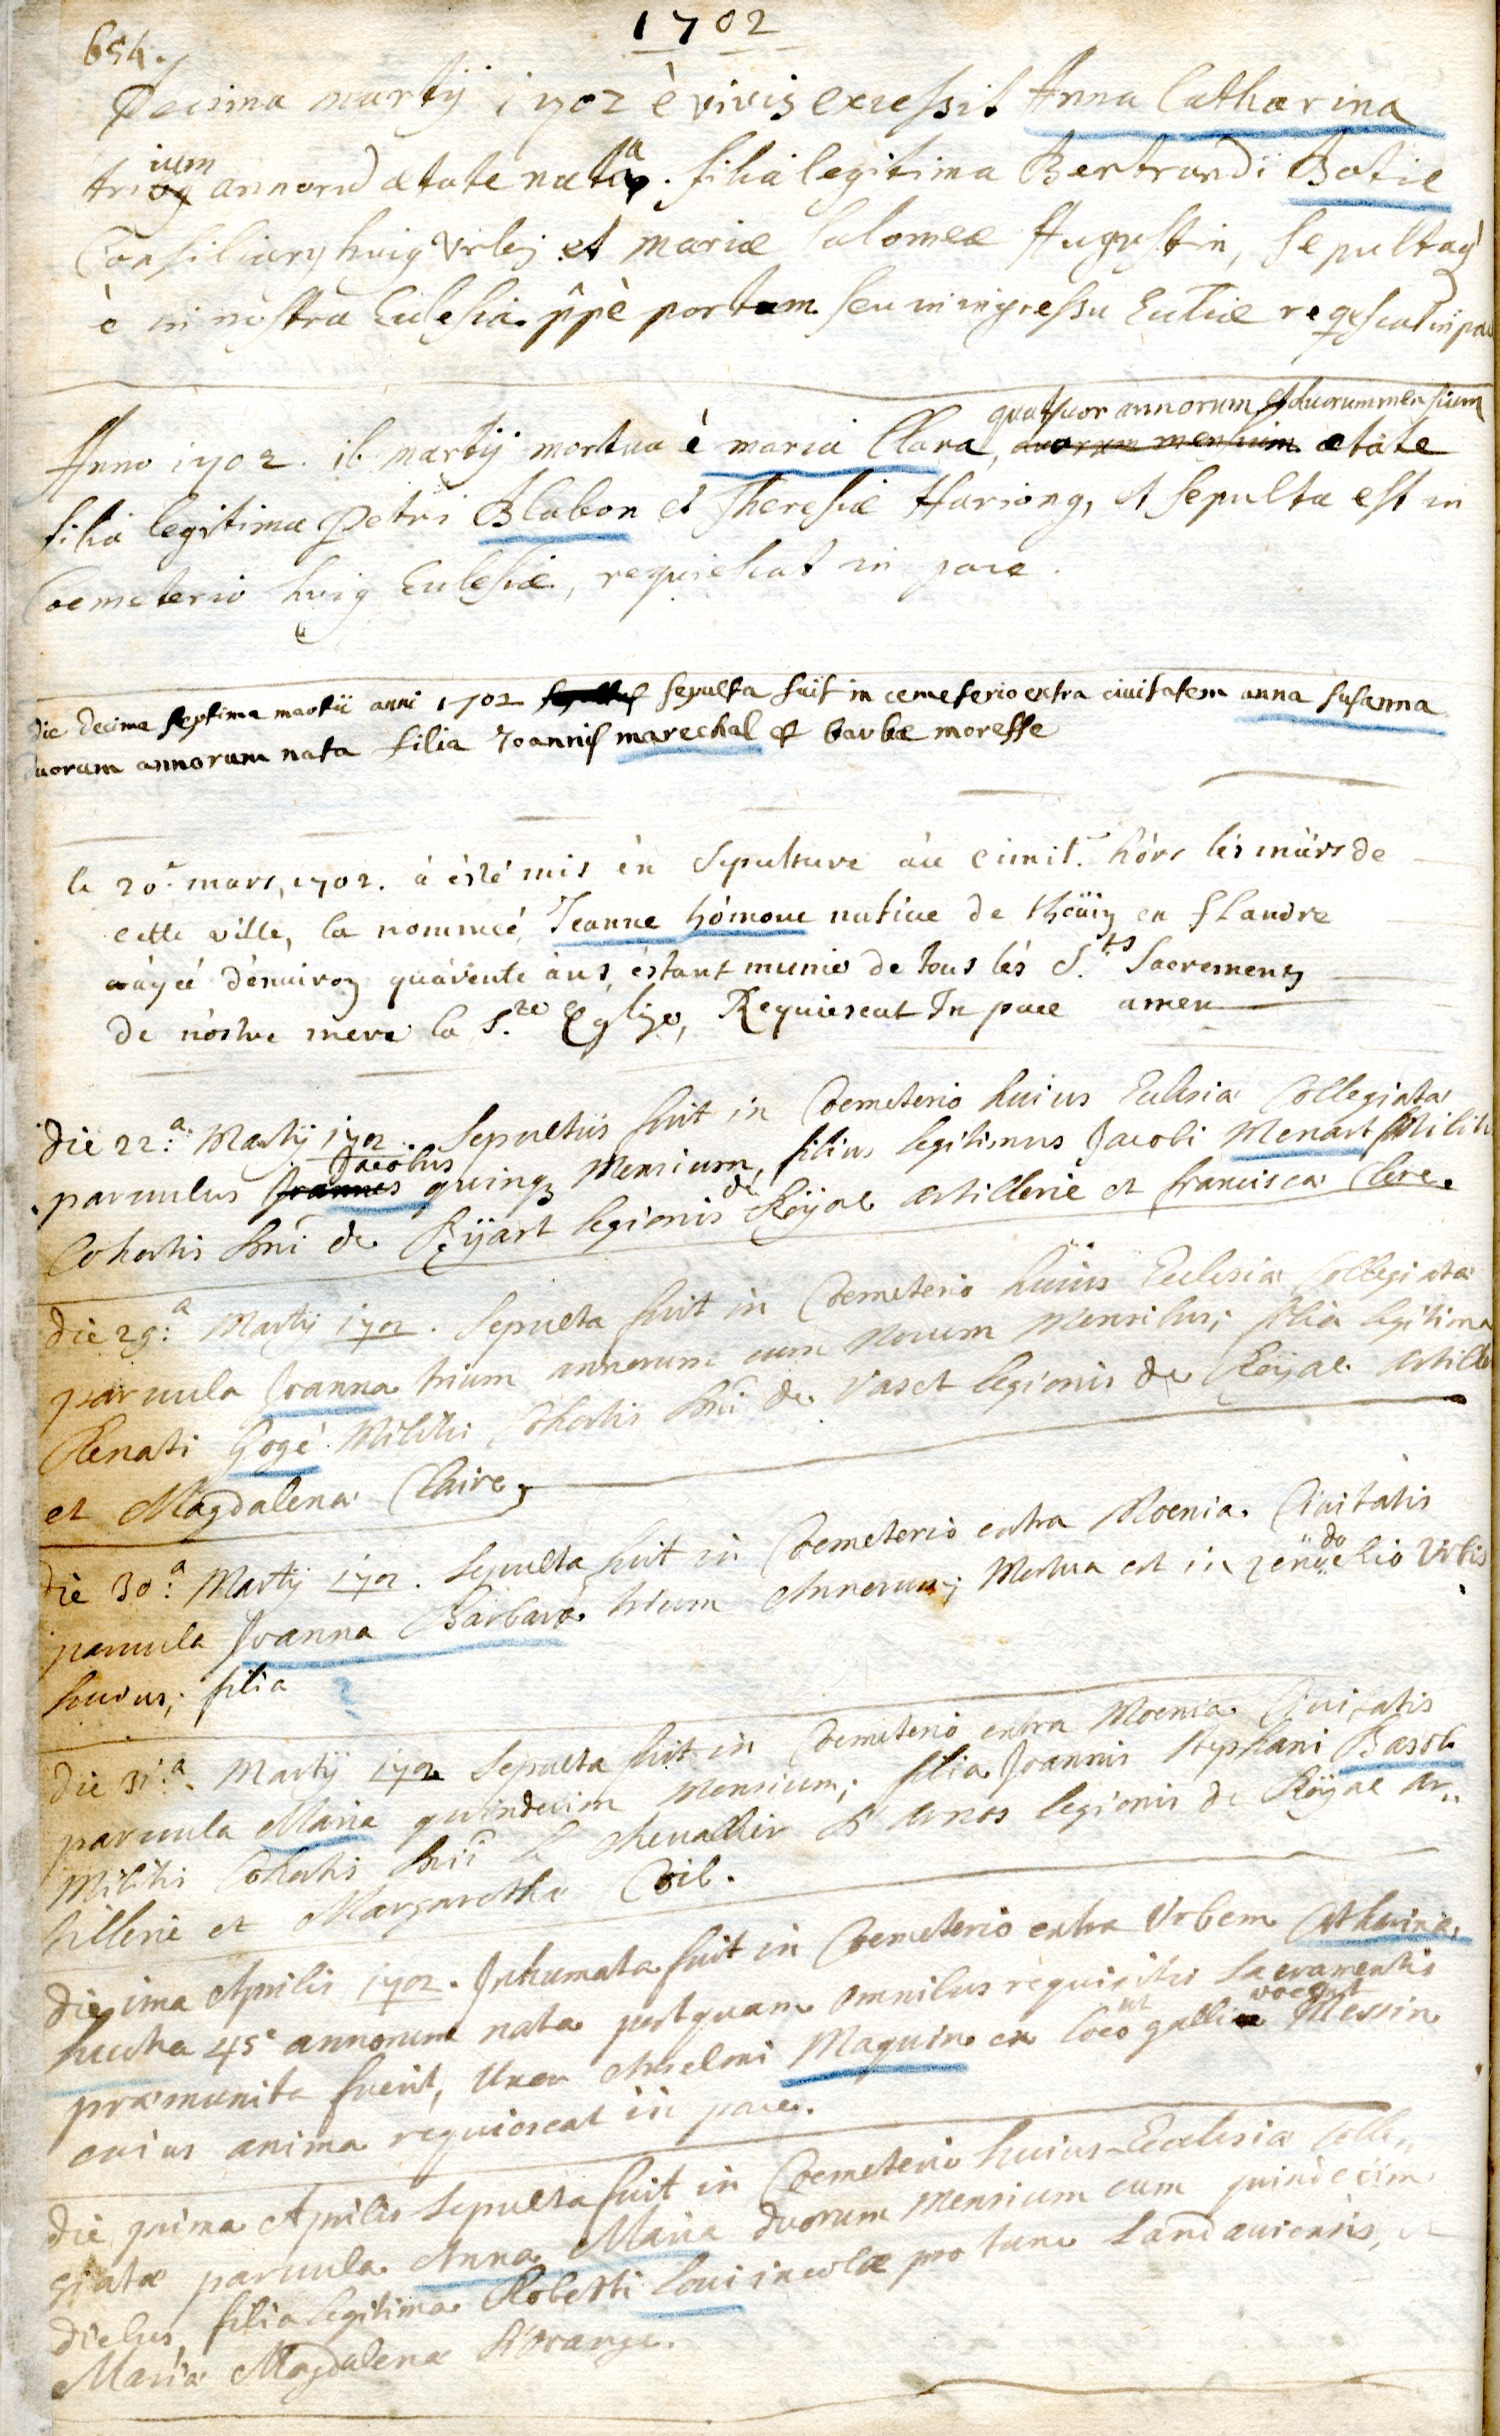 1702
654.
Decima martij 1702 è vivis excessit Anna Catharina
trium annorū ætate nata. filia legitima Bertrandi Batie
Consiliarij huig Urbis et mariæ Salomeæ Augustin, sepultaq
è in nostra Eclesia ppè portam seu in ingressu Ecliæ requiescat in pace
Anno 1702. 16 martij mortua è maria Clara, quatuor annorum et duorum mensium
duorum mensium ætate
filia legitima Petri Blabon et Theresiæ Hariong, et sepulta est in
Coemeterio huig Eclesiæ, requiescat in pace.
die decima septima martii anni 1702 sepulta fuit in cemeterio extra civitatem anna susanna
duorum annorum nata filia Joannis marechal et barbæ moresse
le 20e mars, 1702. à ésté mis èn sepulture aú cimit. hórs lés mürs de
cette ville, la nommeé Jeanne hómoue natiue de en flandre
aágeé dénuiron quárente áns, éstant munie de tous lés S.ts Sacrements
de nóstre mere la S.te Eglise, Requiescat In pace amen
die 22.a Martij 1702. Sepultus fuit in Coemeterio huius Eclesiæ Collegiatæ
parvulus Joannes Jacobus quinq Mensium, filius legitimus Jacobi Menart Militis
Cohortis Dni de Rijart legionis de Roijal Artillerie et francisca Clere.
die 29.a Martij 1702. Sepulta fuit in Coemeterio huius Eclesiæ Collegiatæ
parvula Joanna trium annorum cum novem Mensibus; filia legitima
Renati Gogé Militis Cohortis Dni de Vaset legionis de Roijal Artille
et Magdalena Claire,
Die 30.a Martij 1702. Sepulta fuit in Coemeterio extra Moenia Civitatis
parvula Joanna Barbara trium Annorum; Mortua est in Urbis
huius; filia ?
Die 31.a Martij 1702 Sepulta fuit in Coemeterio extra Moenia Civitatis
parvula Maria quindecim Mensium; filia Joannis Stephani Bassol
Militis Cohortis Dnii le Chevallier D'Arnos legionis de Roijal Ar,,
tillerie et Margaretha Coil.
Die 1ma Aprilis 1702. Inhumata fuit in Coemeterio extra Urbem Catharina
hucha 45 annorum nata postquam omnibus requisitis Sacramentis
præmunita fuerit, Uxor Anselmi Maguin ex loco ut galli vocant Messin
cuius anima requiescat in pace.
Die prima Aprilis Sepulta fuit in Coemeterio huius Ecclesiæ Colle,,
giatæ parvula Anna Maria duorum Mensium cum quindecim
diebus, filia legitima Roberti Loui incolæ pro tunc Landaviensis, et
Maria Magdalena D'orange.